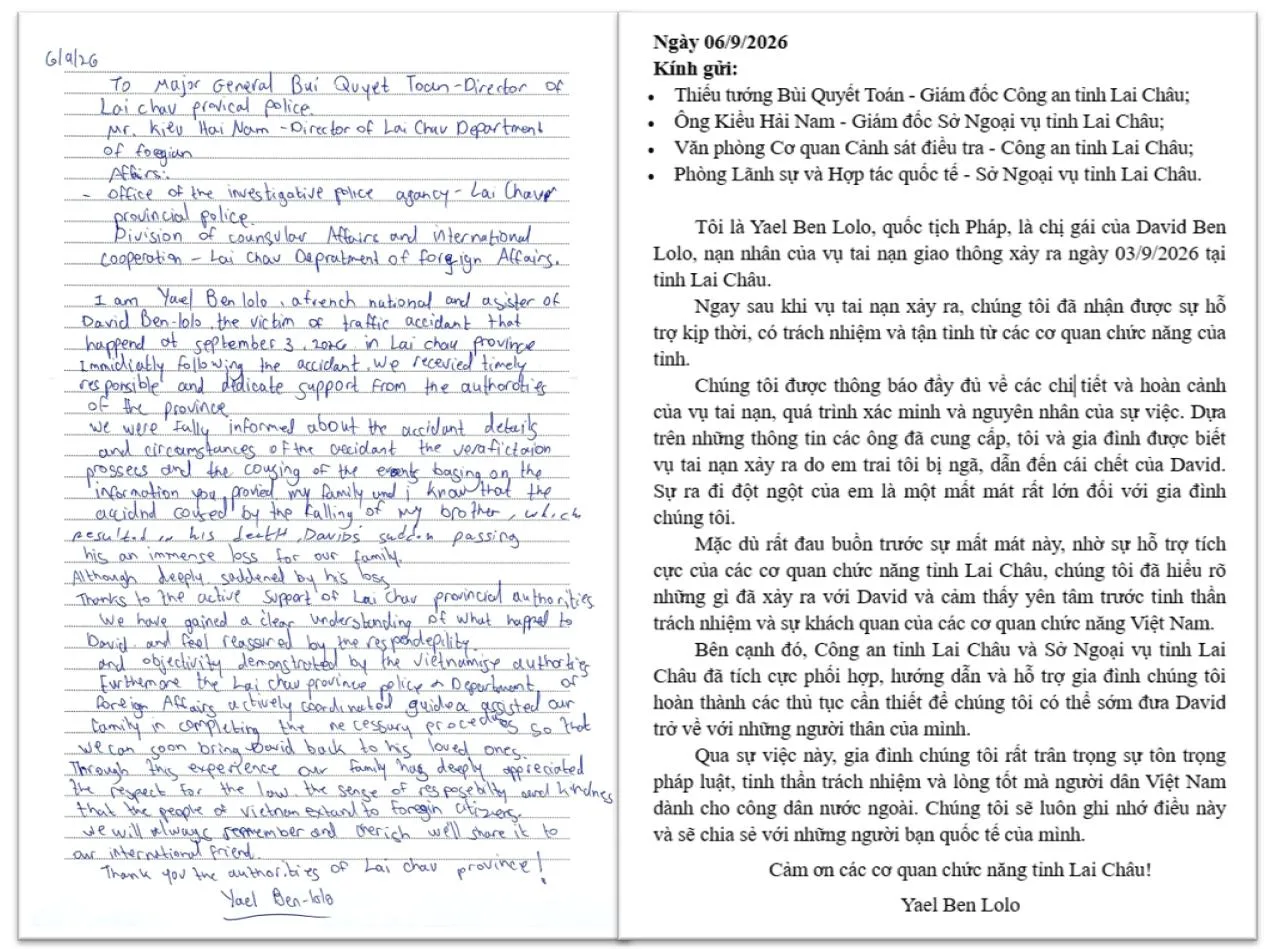 6/9/26
To Major General Bui Quyet Toan - Director of
Lai chau provical police.
Mr. Kieu Hai Nam - Director of Lai Chau Department
of foregian
Affairs:
- office of the investigative police agancy - Lai Chau
provincial police.
Division of counsular Affairs and international
cooperation - Lai chau Depratment of foreign Affairs.
I am Yael Ben lolo, a french national and a sister of
David Ben-lolo, the victim of traffic accidant that
happend at september 3, 2026 in Lai chau province
Immidiatly following the accidant, we recevied timely
responsible and didicate support from the authoroties
of the province
we were fally informed about the accidant details
and circumstances of the accidant the verafictaion
prossecs and the cousing of the events basing on the
information you provied my family and i know that the
accidnd coused by the falling of my brother, which
resulted in his death, Davids sudden passing
his an immense loss for our family.
Although deeply saddened by his loss
Thanks to the active support of Lai chau provincial authorities
we have gained a clear understanding of what happed to
David and feel reassured by the respondepility.
and objectivity demonstrated by the vietnamise authorties
furthermore the Lai chau province police & Department of
foreign Affairs actively coordinated guidea assisted our
family in completing the necessury procedures so that
we can soon bring David back to his loved ones.
Through this experience our family has deeply appreciated
the respect for the law, the sense of resposebility and kindness
that the people of vietnam extand to foregin citizens.
we will always remember and cherich we'll share it to
our international friend.
Thank you the authorities of Lai chau province!
Yael Ben-lolo
Ngày 06/9/2026
Kính gửi:
• Thiếu tướng Bùi Quyết Toán - Giám đốc Công an tỉnh Lai Châu;
• Ông Kiều Hải Nam - Giám đốc Sở Ngoại vụ tỉnh Lai Châu;
• Văn phòng Cơ quan Cảnh sát điều tra - Công an tỉnh Lai Châu;
• Phòng Lãnh sự và Hợp tác quốc tế - Sở Ngoại vụ tỉnh Lai Châu.
Tôi là Yael Ben Lolo, quốc tịch Pháp, là chị gái của David Ben
Lolo, nạn nhân của vụ tai nạn giao thông xảy ra ngày 03/9/2026 tại
tỉnh Lai Châu.
Ngay sau khi vụ tai nạn xảy ra, chúng tôi đã nhận được sự hỗ
trợ kịp thời, có trách nhiệm và tận tình từ các cơ quan chức năng của
tỉnh.
Chúng tôi được thông báo đầy đủ về các chi tiết và hoàn cảnh
của vụ tai nạn, quá trình xác minh và nguyên nhân của sự việc. Dựa
trên những thông tin các ông đã cung cấp, tôi và gia đình được biết
vụ tai nạn xảy ra do em trai tôi bị ngã, dẫn đến cái chết của David.
Sự ra đi đột ngột của em là một mất mát rất lớn đối với gia đình
chúng tôi.
Mặc dù rất đau buồn trước sự mất mát này, nhờ sự hỗ trợ tích
cực của các cơ quan chức năng tỉnh Lai Châu, chúng tôi đã hiểu rõ
những gì đã xảy ra với David và cảm thấy yên tâm trước tinh thần
trách nhiệm và sự khách quan của các cơ quan chức năng Việt Nam.
Bên cạnh đó, Công an tỉnh Lai Châu và Sở Ngoại vụ tỉnh Lai
Châu đã tích cực phối hợp, hướng dẫn và hỗ trợ gia đình chúng tôi
hoàn thành các thủ tục cần thiết để chúng tôi có thể sớm đưa David
trở về với những người thân của mình.
Qua sự việc này, gia đình chúng tôi rất trân trọng sự tôn trọng
pháp luật, tinh thần trách nhiệm và lòng tốt mà người dân Việt Nam
dành cho công dân nước ngoài. Chúng tôi sẽ luôn ghi nhớ điều này
và sẽ chia sẻ với những người bạn quốc tế của mình.
Cảm ơn các cơ quan chức năng tỉnh Lai Châu!
Yael Ben Lolo